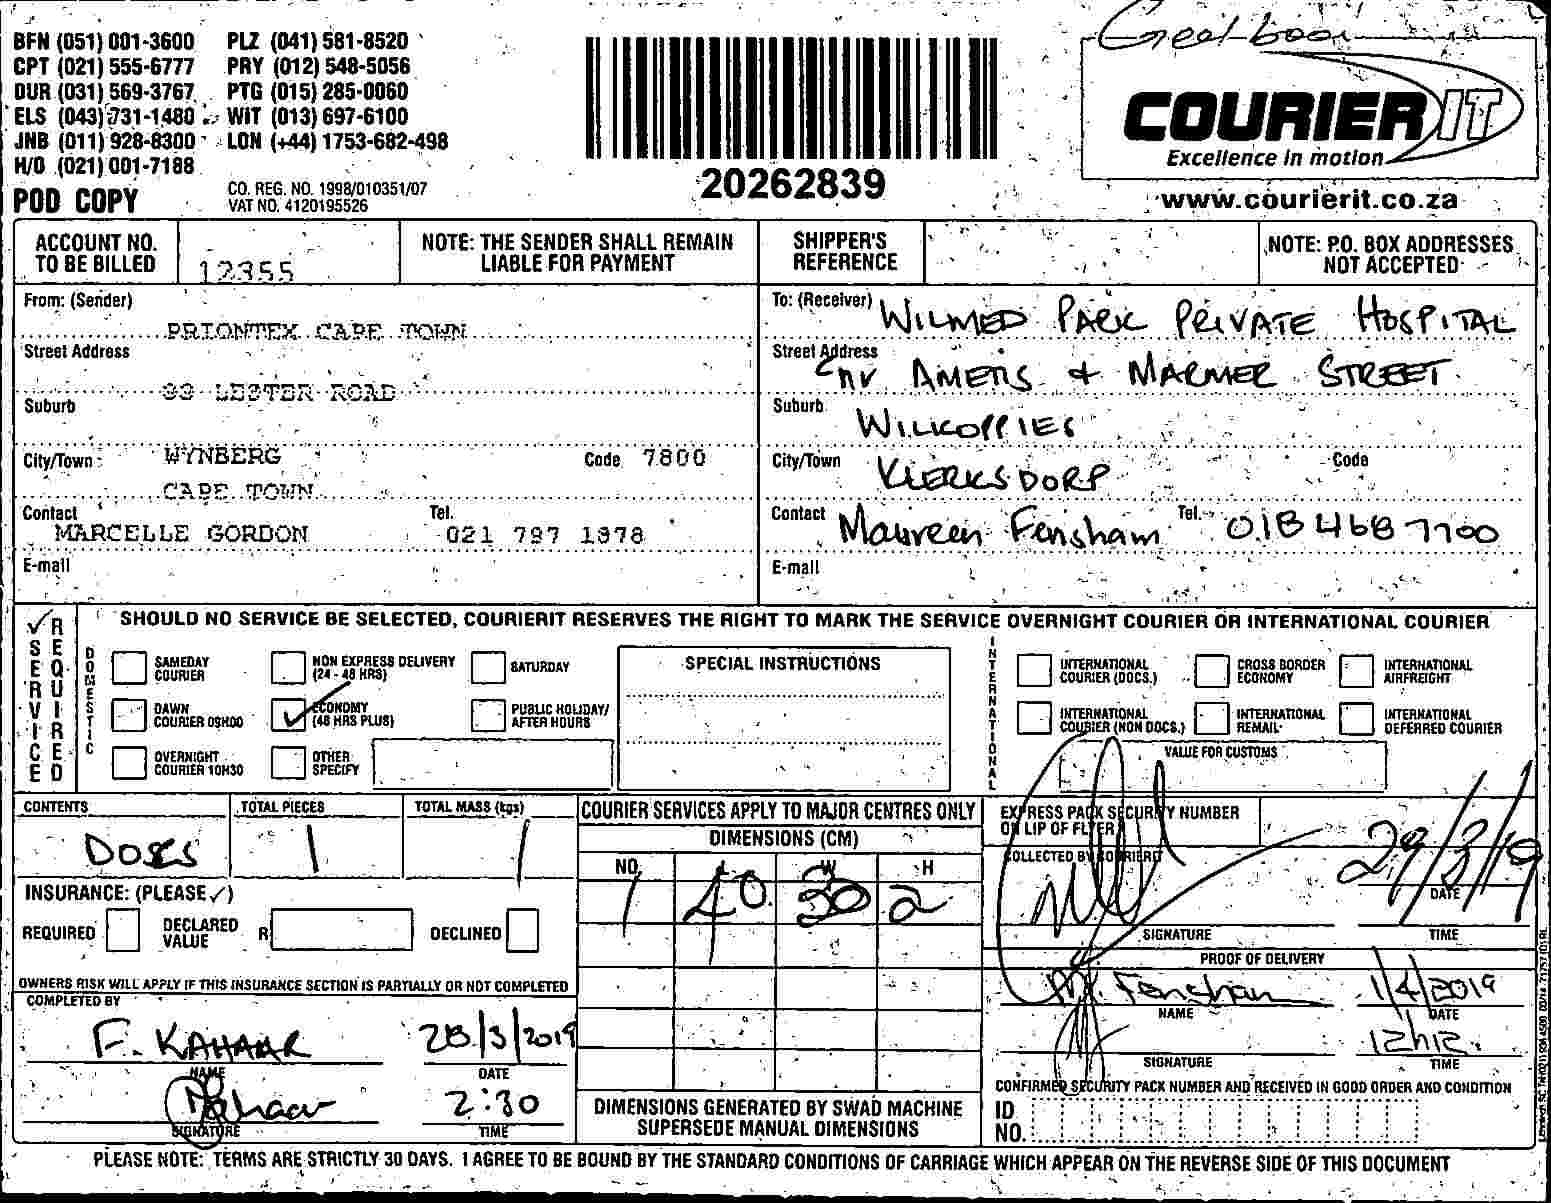 Great boon
BFN (051) 001-3600 PLZ (041) 581-8520
CPT (021) 555-6777 PRY (012) 548-5056
DUR (031) 569-3767 PTG (015) 285-0060
ELS (043) 731-1480 WIT (013) 697-6100
JNB (011) 928-8300 LON (+44) 1753-682-498
H/O (021) 001-7188
POD COPY
CO. REG. NO. 1998/010351/07
VAT NO. 4120195526
20262839
COURIER IT
Excellence in motion
www.courierit.co.za
ACCOUNT NO. TO BE BILLED 12355
NOTE: THE SENDER SHALL REMAIN LIABLE FOR PAYMENT
SHIPPER'S REFERENCE
NOTE: P.O. BOX ADDRESSES NOT ACCEPTED
From: (Sender)
PRIONTEX CAPE TOWN
Street Address
LESTER ROAD
Suburb
City/Town WYNBERG Code 7800
CAPE TOWN
Contact Tel.
MARCELLE GORDON 021 797 1878
E-mail
To: (Receiver) WILMED PARK PRIVATE HOSPITAL
Street Address
Cnr AMETIS & MARMER STREET
Suburb WILKOPPIES
City/Town KLERKSDORP Code
Contact Maureen Fensham Tel. 018 468 7700
E-mail
SERVICE REQUIRED
SHOULD NO SERVICE BE SELECTED, COURIERIT RESERVES THE RIGHT TO MARK THE SERVICE OVERNIGHT COURIER OR INTERNATIONAL COURIER
DOMESTIC
SAMEDAY COURIER
NON EXPRESS DELIVERY (24 - 48 HRS)
SATURDAY
DAWN COURIER 09H00
ECONOMY (48 HRS PLUS)
PUBLIC HOLIDAY/ AFTER HOURS
OVERNIGHT COURIER 10H30
OTHER SPECIFY
SPECIAL INSTRUCTIONS
INTERNATIONAL
INTERNATIONAL COURIER (DOCS.)
CROSS BORDER ECONOMY
INTERNATIONAL AIRFREIGHT
INTERNATIONAL COURIER (NON DOCS.)
INTERNATIONAL REMAIL
INTERNATIONAL DEFERRED COURIER
VALUE FOR CUSTOMS
CONTENTS TOTAL PIECES TOTAL MASS (kgs)
1 1
INSURANCE: (PLEASE ✓)
REQUIRED DECLARED VALUE R DECLINED
OWNERS RISK WILL APPLY IF THIS INSURANCE SECTION IS PARTIALLY OR NOT COMPLETED
COMPLETED BY
F. KAHAAR 28/3/2019
NAME DATE
Kahaar 2:30
SIGNATURE TIME
COURIER SERVICES APPLY TO MAJOR CENTRES ONLY
DIMENSIONS (CM)
NO. L W H
1 40 30 2
DIMENSIONS GENERATED BY SWAD MACHINE SUPERSEDE MANUAL DIMENSIONS
EXPRESS PACK SECURITY NUMBER ON LIP OF FLYER
COLLECTED BY COURIERIT
29/3/19
DATE
SIGNATURE TIME
PROOF OF DELIVERY
M. Fensham 1/4/2019
NAME DATE
12h12
SIGNATURE TIME
CONFIRMED SECURITY PACK NUMBER AND RECEIVED IN GOOD ORDER AND CONDITION
ID NO.
PLEASE NOTE: TERMS ARE STRICTLY 30 DAYS. I AGREE TO BE BOUND BY THE STANDARD CONDITIONS OF CARRIAGE WHICH APPEAR ON THE REVERSE SIDE OF THIS DOCUMENT